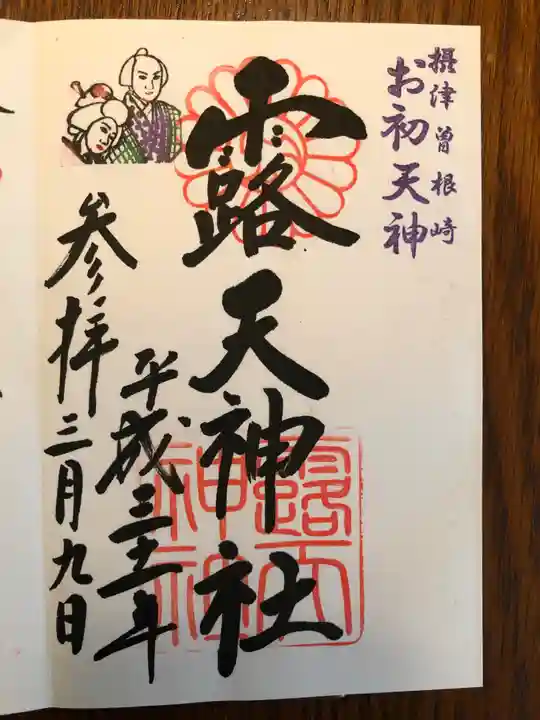 摂津曽根崎
お初天神
露天神社
平成三十一年
参拝三月九日
露天
神社